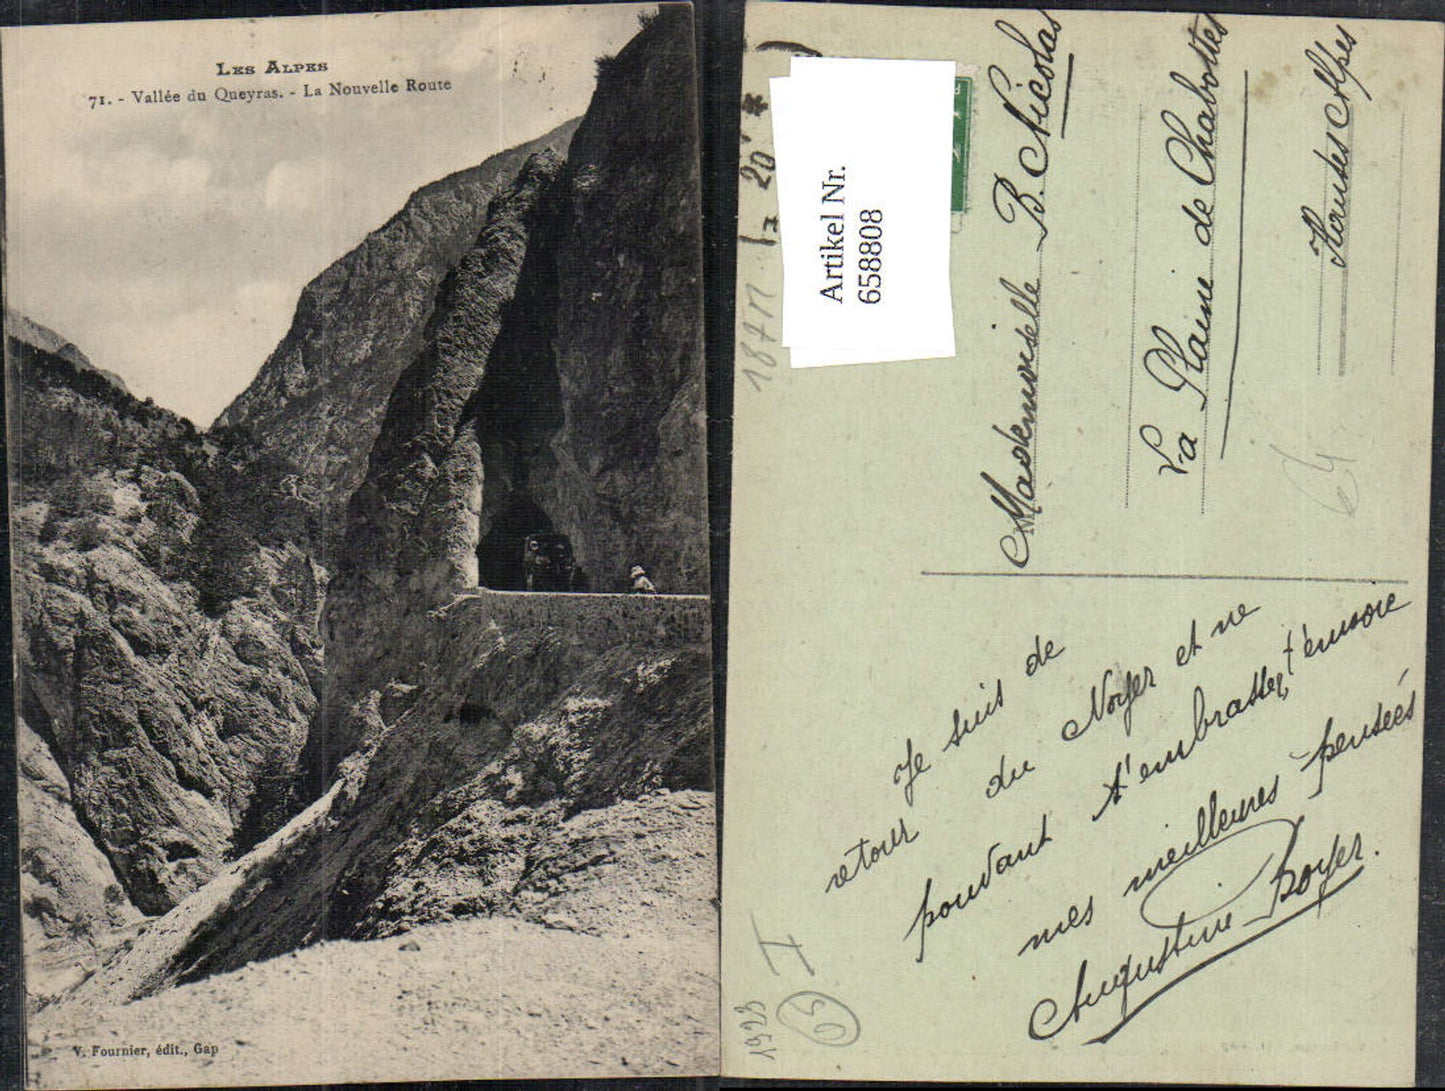 LES ALPES
71. - Vallée du Queyras. - La Nouvelle Route
V. Fournier, édit., Gap
Artikel Nr.
658808
Mademoiselle B. Nicolas
La Plaine de Chabottes
Hautes Alpes
64
Je suis de
retour du Noyer et ne
pouvant t'embrasser, t'envoie
mes meilleures pensées
Augustine Boyer.
I
63
1923